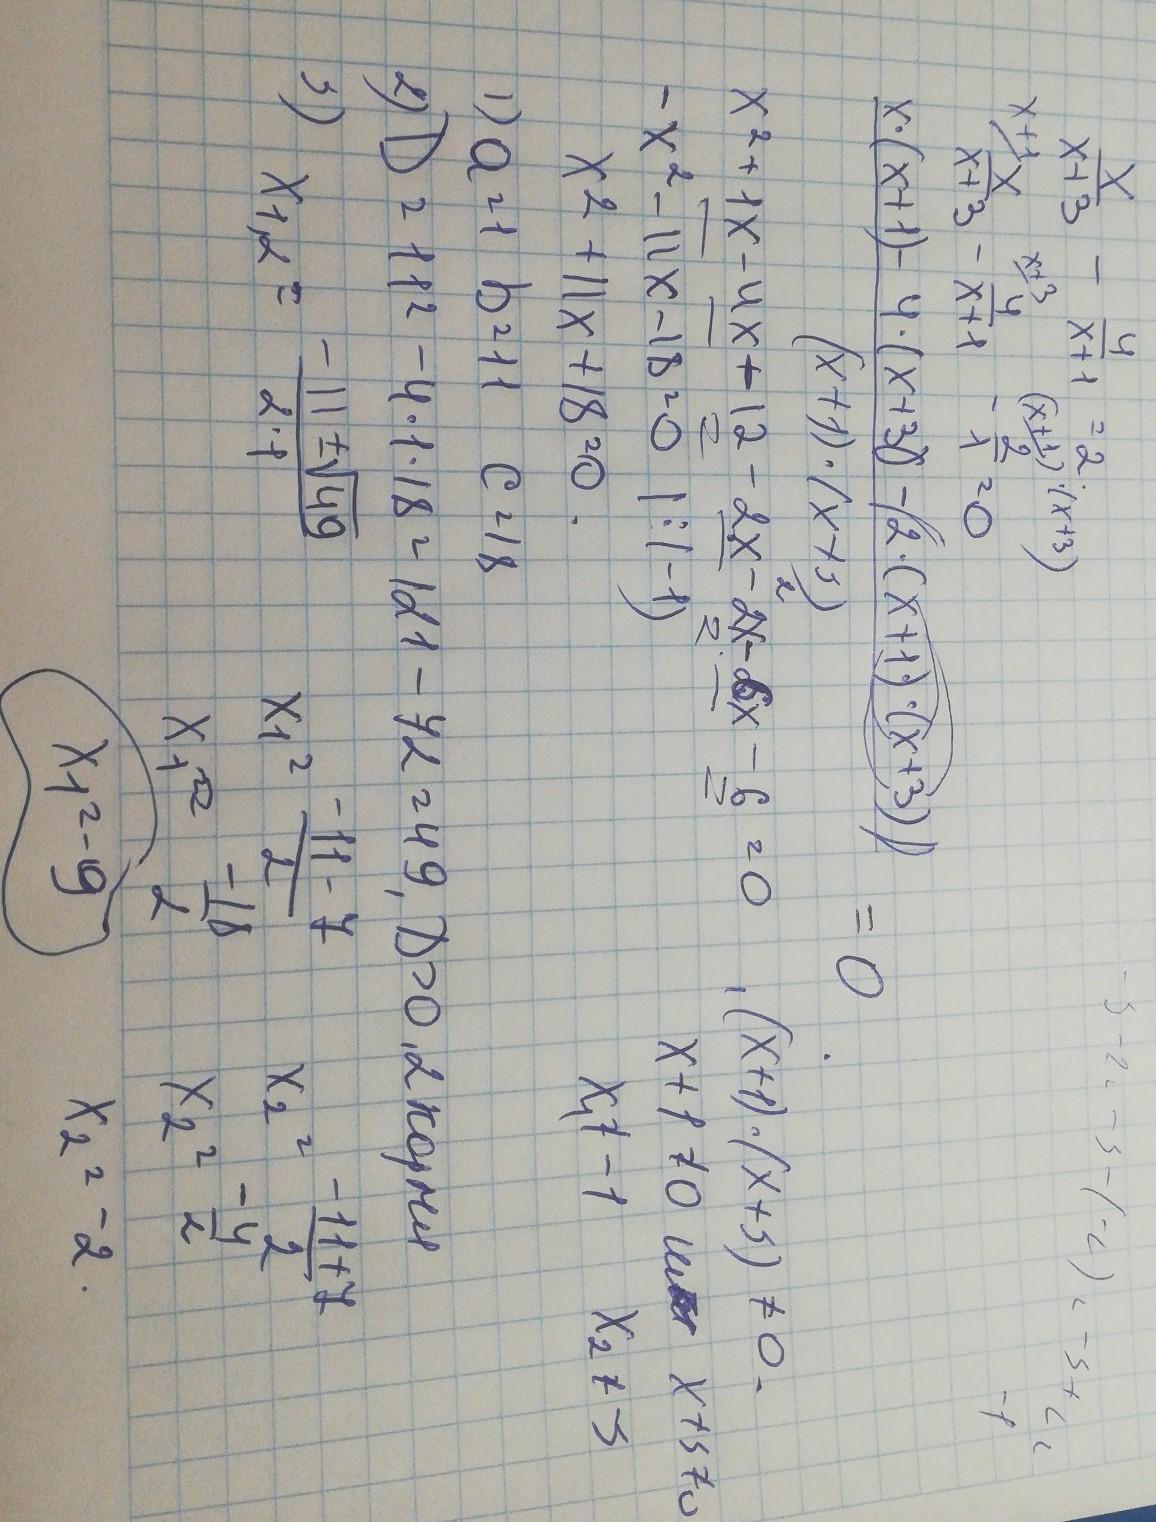 x/(x+3) - 4/(x+1) = 2.
x+1 x+3 (x+1)·(x+3)
x/(x+3) - 4/(x+1) - 2/1 = 0
x·(x+1) - 4·(x+3) - (2·(x+1)·(x+3)) = 0.
(x+1)·(x+3)
x² + 1x - 4x + 12 - 2x - 2x² - 6x - 6 = 0 , (x+1)·(x+3) ≠ 0.
- x² - 11x - 18 = 0 |:(-1) x+1 ≠ 0 x+3 ≠ 0
x² + 11x + 18 = 0. x₁ ≠ -1 x₂ ≠ 3
1) a = 1 b = 11 c = 18
2) D = 11² - 4·1·18 = 121 - 72 = 49, D>0, 2 корни
3) x1,2 = (-11 ± √49)/(2·1) x₁ = (-11-7)/2 x₂ = (-11+7)/2
x₁ = -18/2 x₂ = -4/2
x₁ = -9 x₂ = -2.